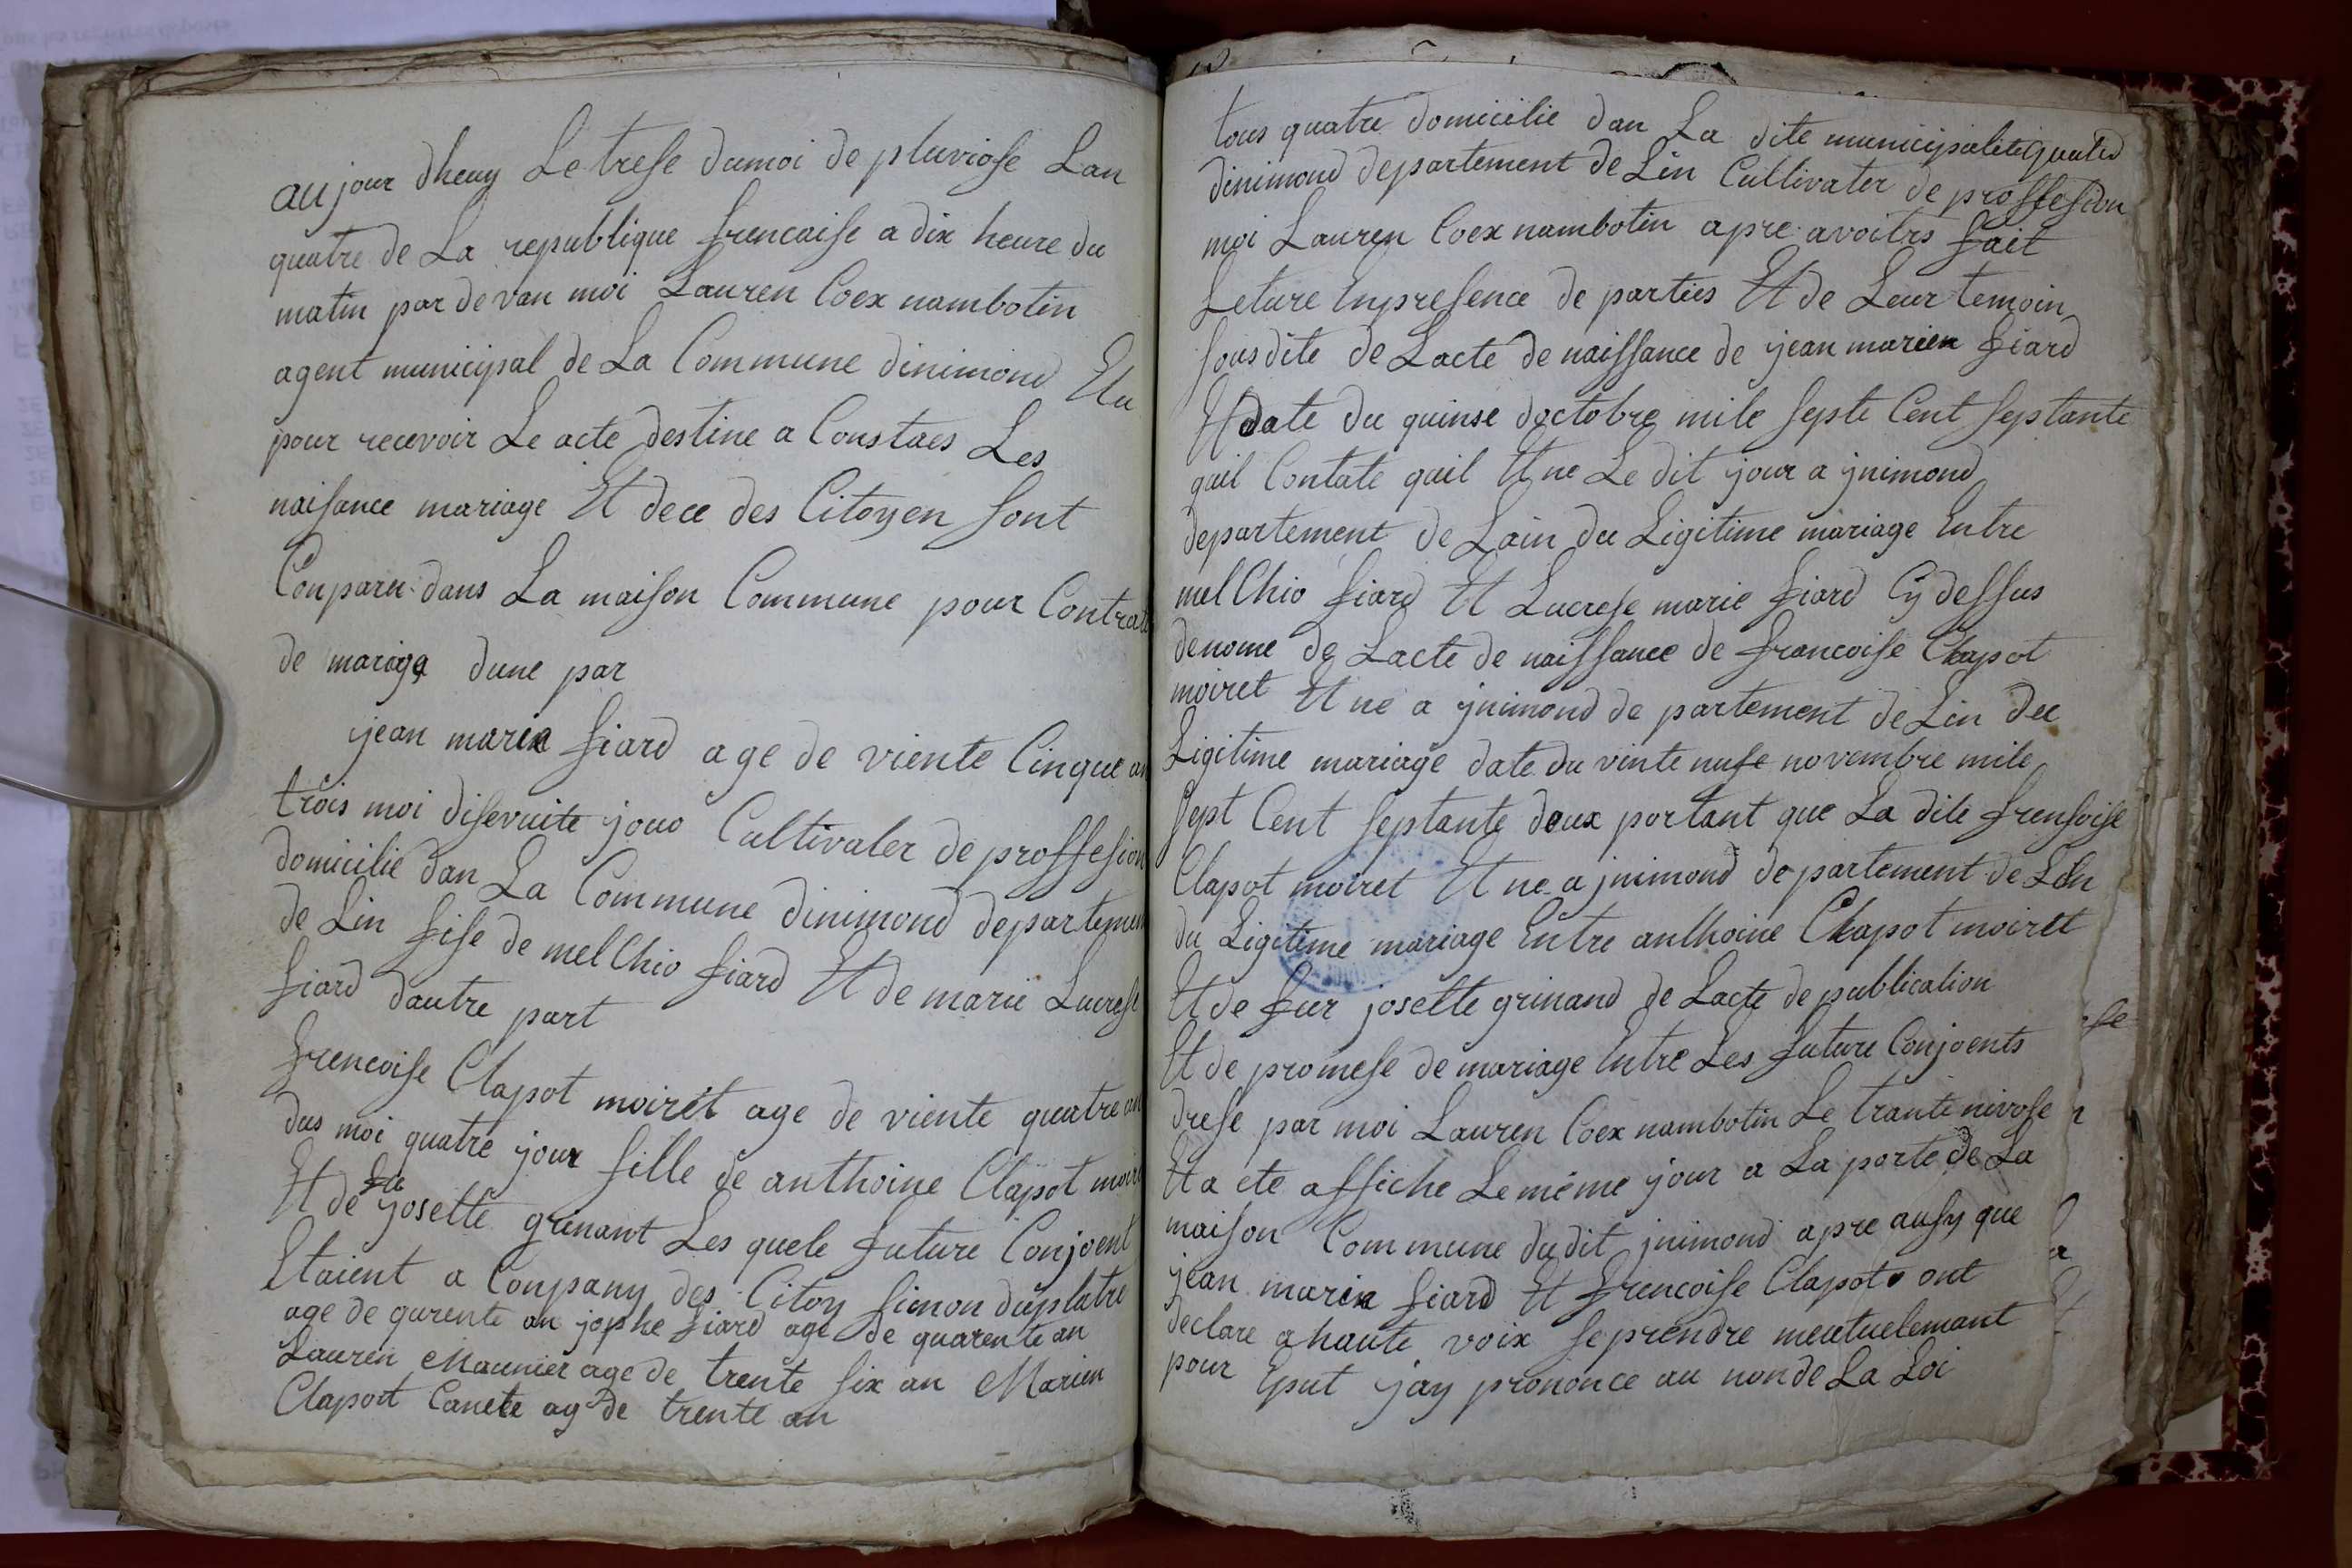 aujour dheuy Le trese dumoi de pluviose Lan
quatre de La republique frencaise a dix heure du
matin par devan moi Lauren Coex nambotin
agent municipal de La Commune dinimond Elu
pour recevoir Le acte destine a Constaes Les
naisance mariage Et dece des Citoyen sont
Conparu dans La maison Commune pour Contrate
de mariage dune par
jean marien fiard age de viente Cinque an
trois moi disevuite jour Cultivater de proffesion
domicilie dan La Commune dinimond departemen
de Lin fise de mel Chio fiard Et de marie Lucrese
fiard dautre part
frencoise Clapot moiret age de viente quatre an
dus moi quatre jour fille de anthoine Clapot moire
Et de fu josette grinant Les quele future Conjoent
Etaient a Conpany des Citoy simon duplatre
age de qarente an jophe fiard age de quarente an
Lauren Maunier age de trente six an Marien
Claport Canete ag de trente an
tous quatre domicilie dan La dite municipalite
dinimond departement de Lin Cultivater de proffesion
moi Lauren Coex nambotin apre avoitrs fait
Leture Enpresence de parties Et de Leur temoin
sousdite de Lacte de naissance de jean marien fiard
Et date du quinse doctobre mile septe Cent septante
quil Contate quil Et ne Le dit jour a jnimond
departement de Lain du Ligitime mariage Entre
mel Chio fiard Et Lucrese marie fiard Cy dessus
denome de Lacte de naissance de francoise Clapot
moiret Et ne a jnimond de partement de Lin du
Ligitime mariage date du vinte nufe novembre mile
sept Cent septante deux portant que La dite frensoise
Clapot moiret Et ne a jnimond de partement de Lin
du Ligitime mariage Entre anthoine Clapot moiret
Et de fur josette grinand de Lacte de publication
Et de promese de mariage Entre Les future Conjoents
drese par moi Lauren Coex nambotin Le trante nivose
Et a ete affiche Le méme jour a La porte de La
maison Commune dudit jnimond apre ausy que
jean marien fiard Et frencoise Clapot ont
declare a haute voix se prendre meutuelemant
pour Eput jay prononce au nonde La Loi